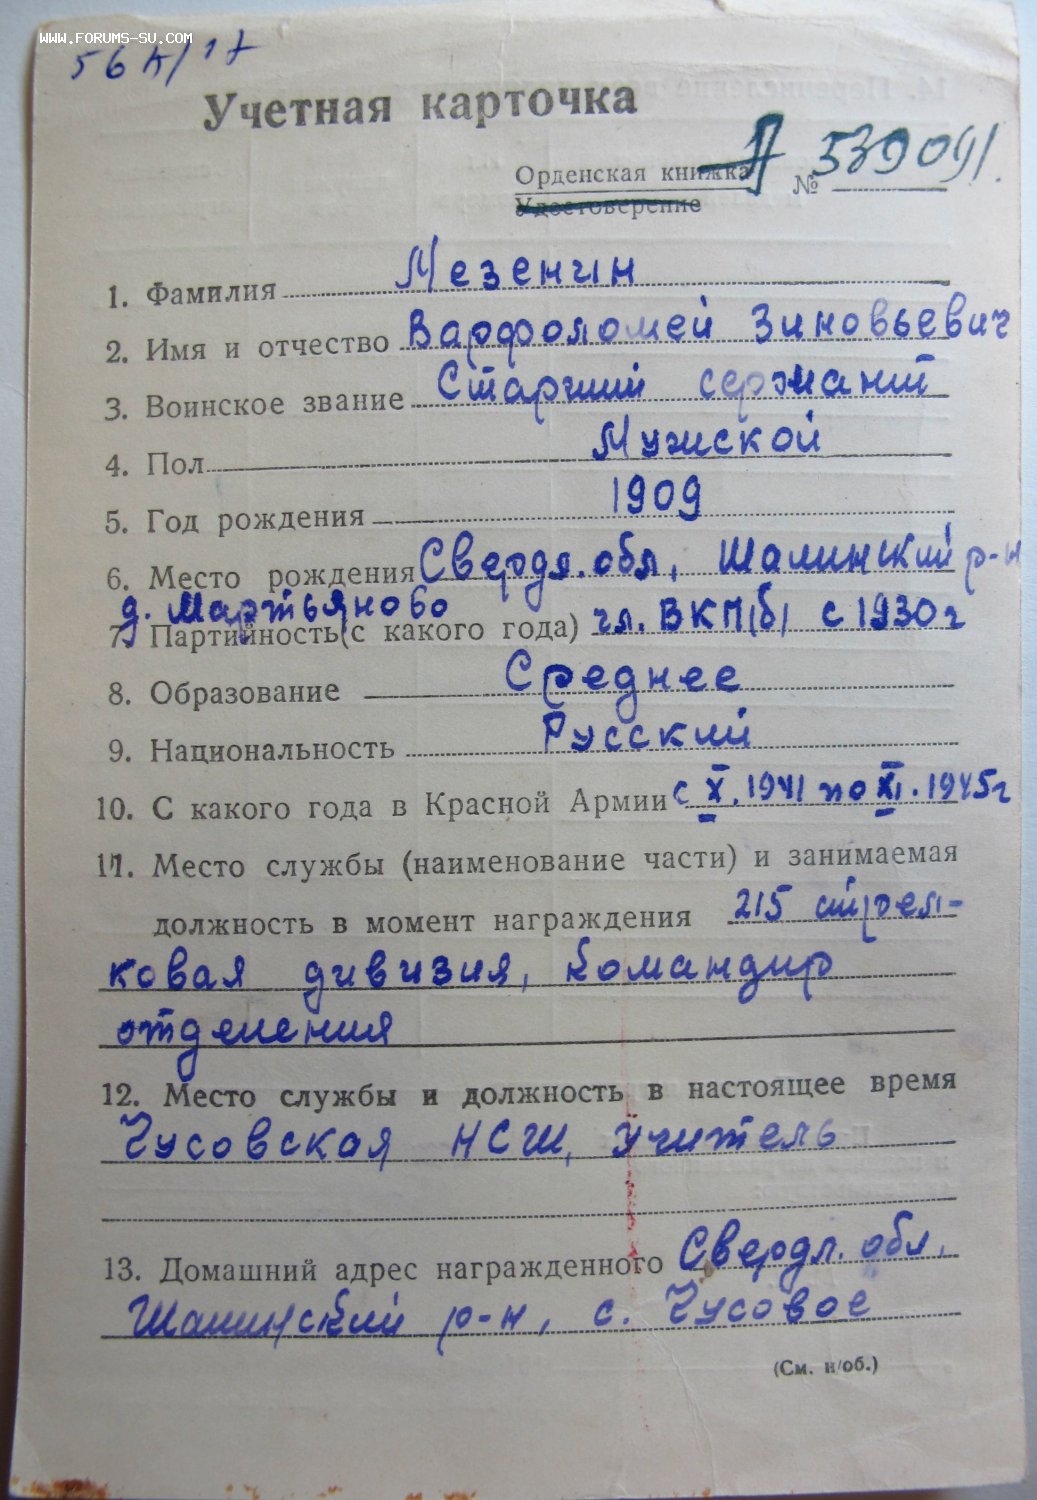 www.forums-su.com
56 к/17
Учетная карточка
Орденская книжка А № 539091.
Удостоверение
1. Фамилия Мезенин
2. Имя и отчество Варфоломей Зиновьевич
3. Воинское звание Старший сержант
4. Пол Мужской
5. Год рождения 1909
6. Место рождения Свердл. обл, Шалинский р-н
д. Мартьяново
7. Партийность (с какого года) чл. ВКП(б) с 1930 г
8. Образование Среднее
9. Национальность Русский
10. С какого года в Красной Армии с X. 1941 по XI. 1945 г
11. Место службы (наименование части) и занимаемая
должность в момент награждения 215 стрел-
ковая дивизия, командир
отделения
12. Место службы и должность в настоящее время
Чусовская НСШ, учитель
13. Домашний адрес награжденного Свердл. обл,
Шалинский р-н, с. Чусовое
(См. н/об.)